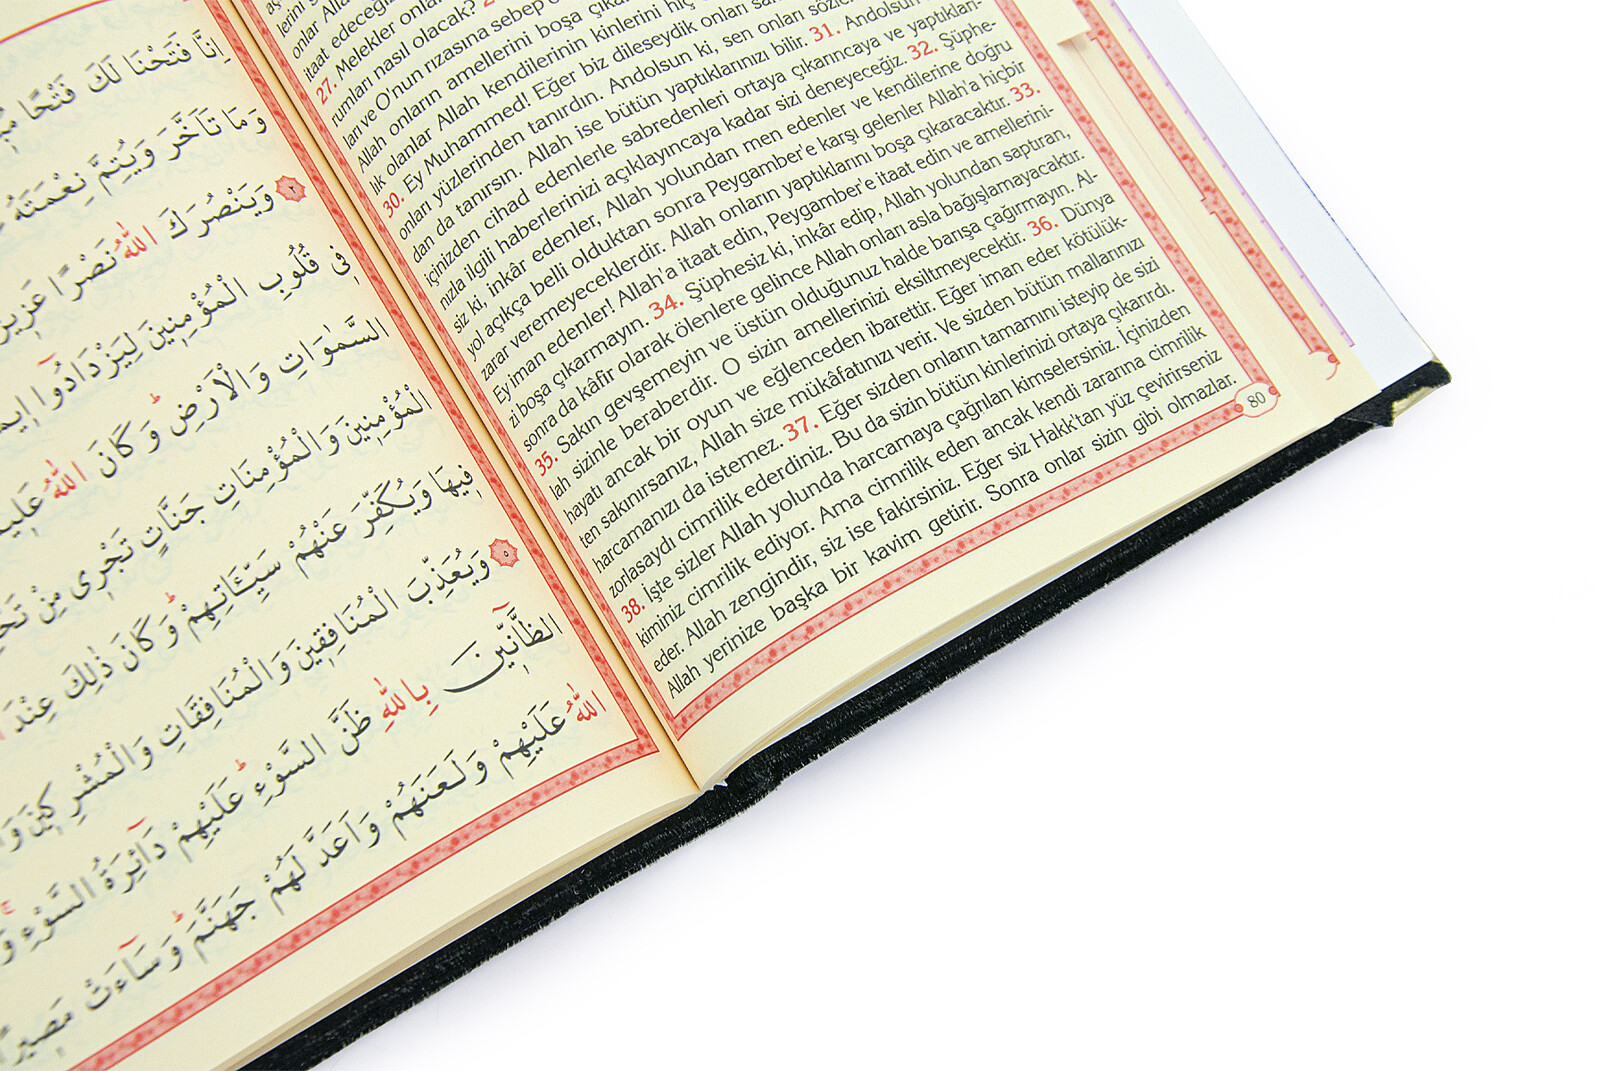 itaat edeceğiz
27. Melekler onlar
rumları nasıl olacak?
ları ve O'nun rızasına sebep
Allah onların amellerini boşa
lık olanlar Allah kendilerinin kinlerini hiç
30. Ey Muhammed! Eğer biz dileseydik onları
onları yüzlerinden tanırdın. Andolsun ki, sen onları
dan da tanırsın. Allah ise bütün yaptıklarınızı bilir. 31. Andolsun
içinizden cihad edenlerle sabredenleri ortaya çıkarıncaya ve yaptıkları-
nızla ilgili haberlerinizi açıklayıncaya kadar sizi deneyeceğiz. 32. Şüphe-
siz ki, inkâr edenler, Allah yolundan men edenler ve kendilerine doğru
yol açıkça belli olduktan sonra Peygamber'e karşı gelenler Allah'a hiçbir
zarar veremeyeceklerdir. Allah onların yaptıklarını boşa çıkaracaktır. 33.
Ey iman edenler! Allah'a itaat edin, Peygamber'e itaat edin ve amellerini-
zi boşa çıkarmayın. 34. Şüphesiz ki, inkâr edip, Allah yolundan saptıran,
sonra da kâfir olarak ölenlere gelince Allah onları asla bağışlamayacaktır.
35. Sakın gevşemeyin ve üstün olduğunuz halde barışa çağırmayın. Al-
lah sizinle beraberdir. O sizin amellerinizi eksiltmeyecektir. 36. Dünya
hayatı ancak bir oyun ve eğlenceden ibarettir. Eğer iman eder kötülük-
ten sakınırsanız, Allah size mükâfatınızı verir. Ve sizden bütün mallarınızı
harcamanızı da istemez. 37. Eğer sizden onların tamamını isteyip de sizi
zorlasaydı cimrilik ederdiniz. Bu da sizin bütün kinlerinizi ortaya çıkarırdı.
38. İşte sizler Allah yolunda harcamaya çağrılan kimselersiniz. İçinizden
kiminiz cimrilik ediyor. Ama cimrilik eden ancak kendi zararına cimrilik
eder. Allah zengindir, siz ise fakirsiniz. Eğer siz Hakk'tan yüz çevirirseniz
Allah yerinize başka bir kavim getirir. Sonra onlar sizin gibi olmazlar.
80
اِنَّا فَتَحْنَا لَكَ فَتْحًا
وَمَا تَاَخَّرَ وَيُتِمَّ نِعْمَتَهُ
وَيَنْصُرَكَ اللّٰهُ نَصْرًا عَزِيزًا
فِى قُلُوبِ الْمُؤْمِنِينَ لِيَزْدَادُٓوا
السَّمٰوَاتِ وَالْاَرْضِ وَكَانَ اللّٰهُ
الْمُؤْمِنِينَ وَالْمُؤْمِنَاتِ جَنَّاتٍ تَجْرِى مِنْ
فِيهَا وَيُكَفِّرَ عَنْهُمْ سَيِّـَٔاتِهِمْ وَكَانَ ذٰلِكَ عِنْدَ
٥ وَيُعَذِّبَ الْمُنَافِقِينَ وَالْمُنَافِقَاتِ وَالْمُشْرِكِينَ
الظَّٓانِّينَ بِاللّٰهِ ظَنَّ السَّوْءِ عَلَيْهِمْ دَٓائِرَةُ السَّوْءِ
اللّٰهُ عَلَيْهِمْ وَلَعَنَهُمْ وَاَعَدَّ لَهُمْ جَهَنَّمَ وَسَٓاءَتْ مَصِيرًا